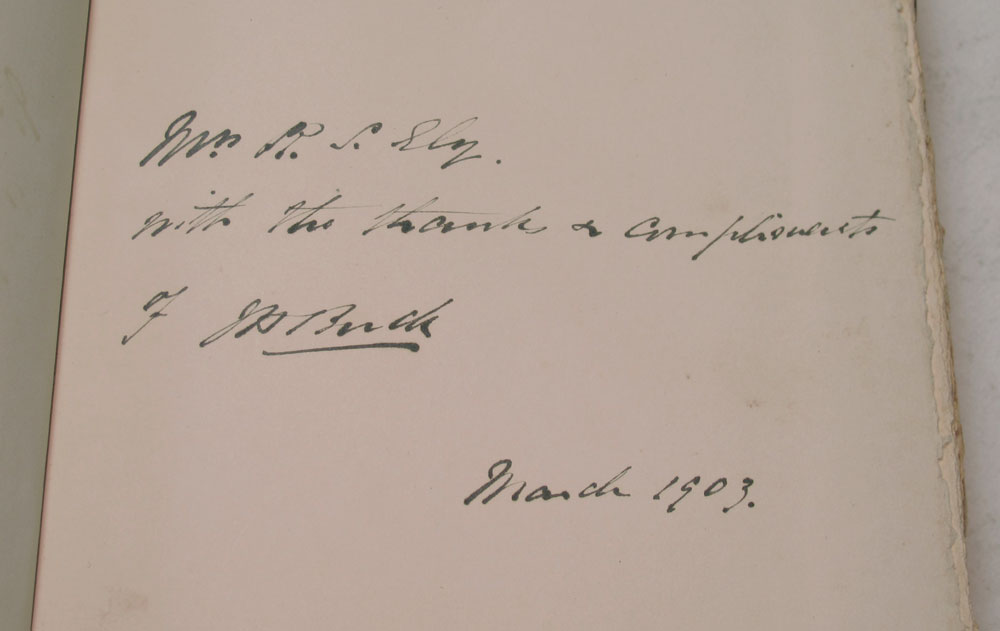 Mrs R. S. Ely.
with the thanks & compliments
of JH Buck
March 1903.